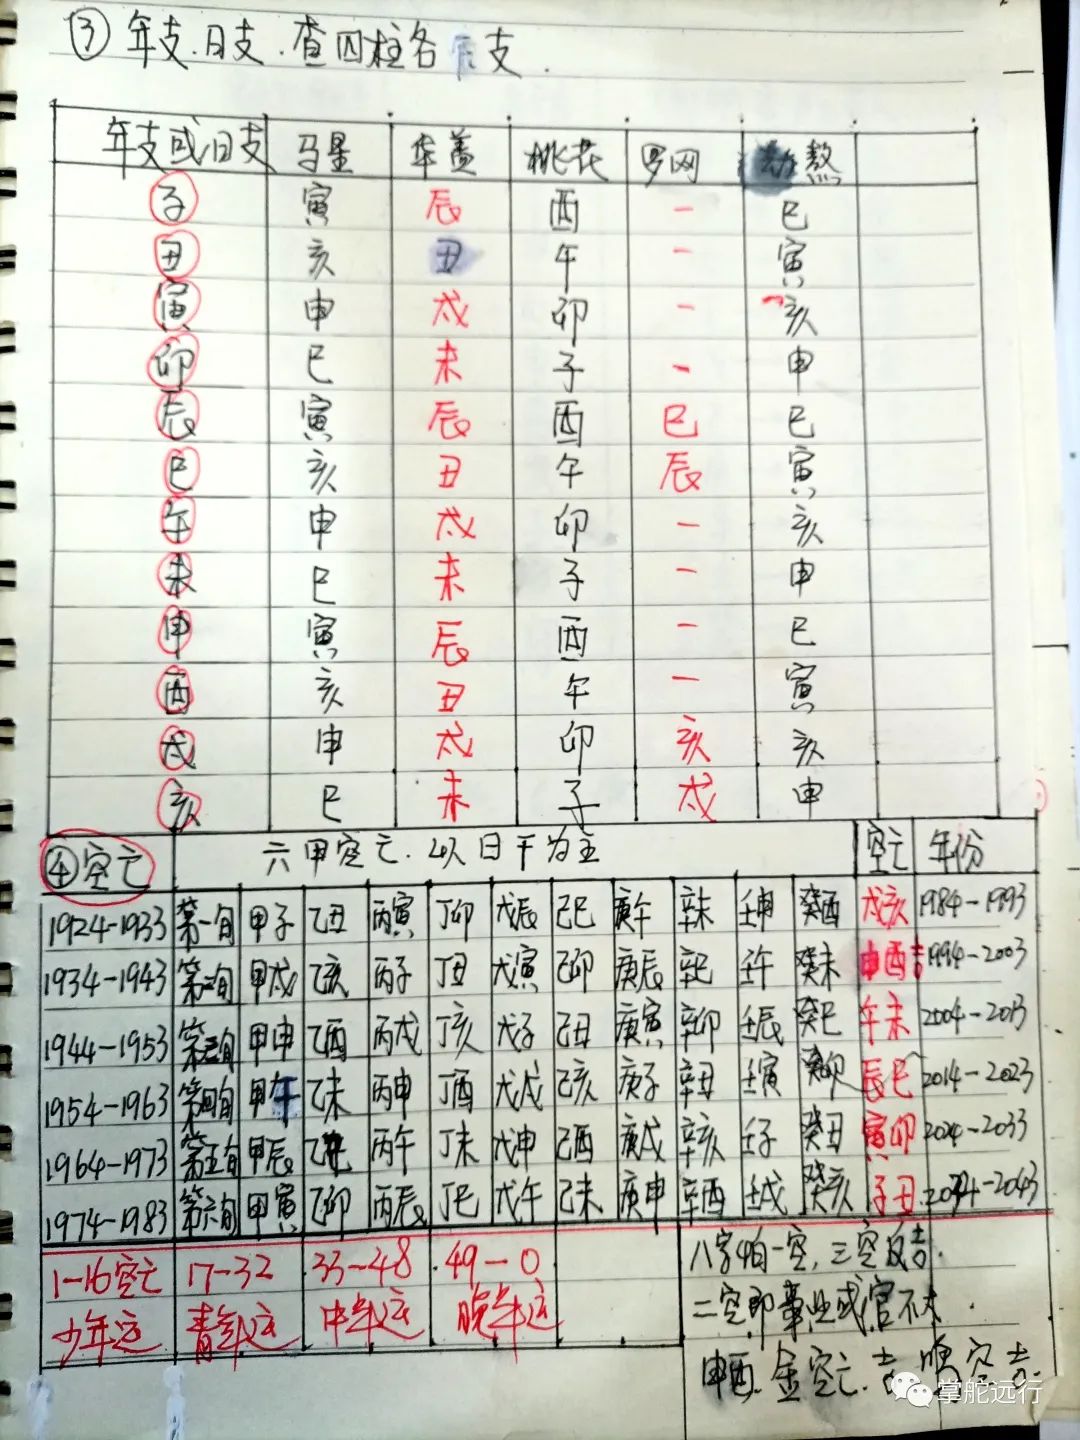 ③ 年支.日支.查四柱各支.
年支或日支 马星 华盖 桃花 罗网 劫煞
子 寅 辰 酉 一 巳
丑 亥 丑 午 一 寅
寅 申 戌 卯 一 亥
卯 巳 未 子 一 申
辰 寅 辰 酉 巳 巳
巳 亥 丑 午 辰 寅
午 申 戌 卯 一 亥
未 巳 未 子 一 申
申 寅 辰 酉 一 巳
酉 亥 丑 午 一 寅
戌 申 戌 卯 亥 亥
亥 巳 未 子 戌 申
④空亡 六甲空亡.以日干为主 空亡 年份
1924-1933 第一旬 甲子 乙丑 丙寅 丁卯 戊辰 己巳 庚午 辛未 壬申 癸酉 戌亥 1984-1993
1934-1943 第二旬 甲戌 乙亥 丙子 丁丑 戊寅 己卯 庚辰 辛巳 壬午 癸未 申酉吉 1994-2003
1944-1953 第三旬 甲申 乙酉 丙戌 丁亥 戊子 己丑 庚寅 辛卯 壬辰 癸巳 午未 2004-2013
1954-1963 第四旬 甲午 乙未 丙申 丁酉 戊戌 己亥 庚子 辛丑 壬寅 癸卯 辰巳 2014-2023
1964-1973 第五旬 甲辰 乙巳 丙午 丁未 戊申 己酉 庚戌 辛亥 壬子 癸丑 寅卯 2024-2033
1974-1983 第六旬 甲寅 乙卯 丙辰 丁巳 戊午 己未 庚申 辛酉 壬戌 癸亥 子丑 2034-2043
1-16空亡 17-32 33-48 49-0
少年运 青年运 中年运 晚年运
八字怕一空,三空反吉.
二空即事业或官不大.
申酉.金空亡.吉 空吉.
掌舵远行